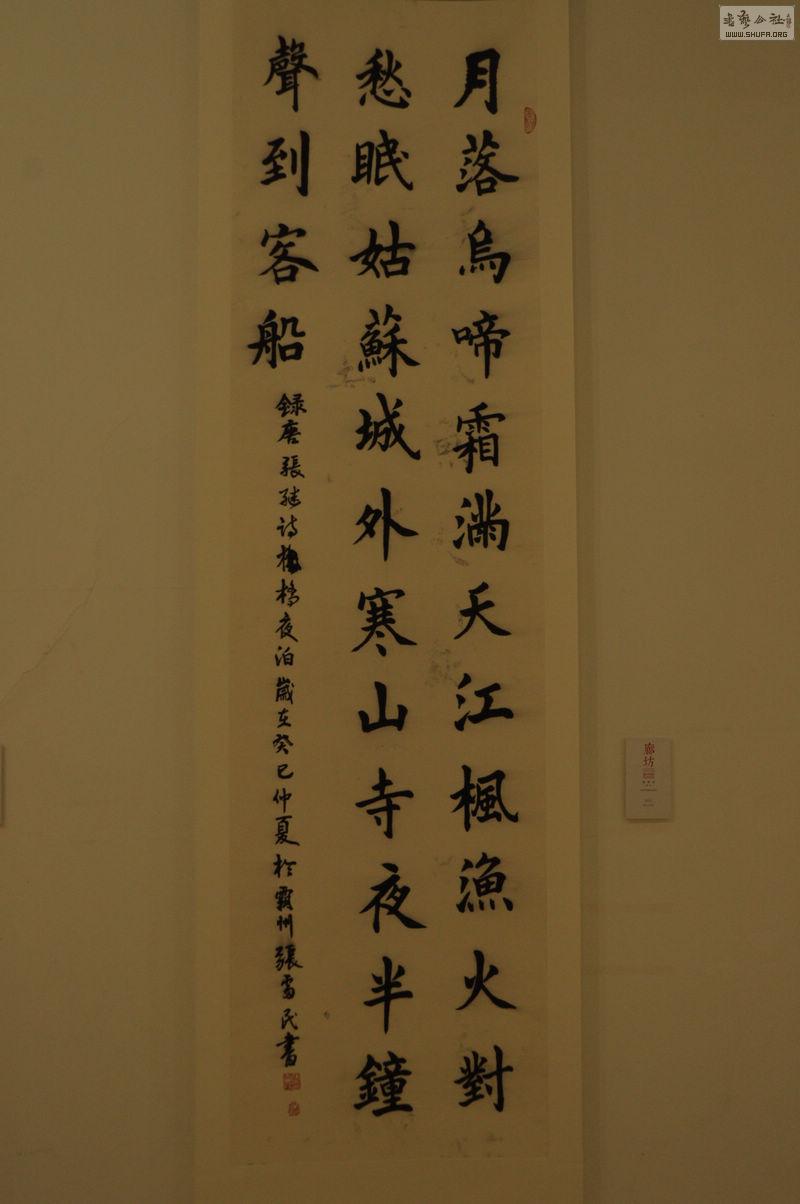 月落烏啼霜滿天江楓漁火對
愁眠姑蘇城外寒山寺夜半鐘
聲到客船
録唐張继诗楓橋夜泊歲在癸巳仲夏於霸州張雷民書
廊坊
書藝公社
WWW.SHUFA.ORG